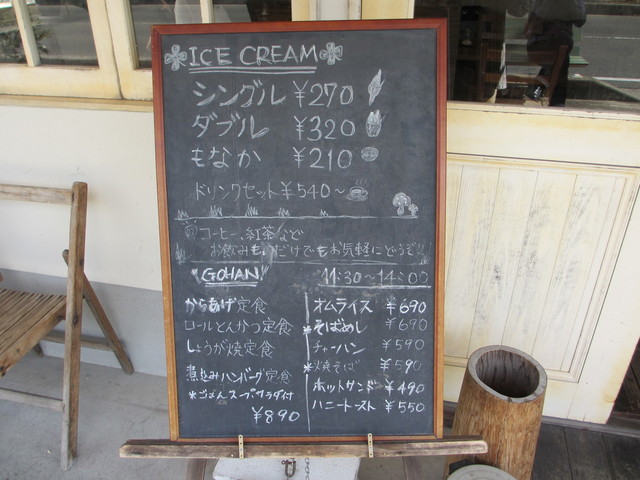 ICE CREAM
シングル ¥270
ダブル ¥320
もなか ¥210
ドリンクセット ¥540~
コーヒー、紅茶など
お飲みものだけでもお気軽にどうぞ!!
GOHAN 11:30~14:00
からあげ定食
ロールとんかつ定食
しょうが焼定食
煮込みハンバーグ定食
*ごはんスープサラダ付
¥890
オムライス ¥690
*そばめし ¥690
チャーハン ¥590
*焼そば ¥590
ホットサンド ¥490
ハニートースト ¥550